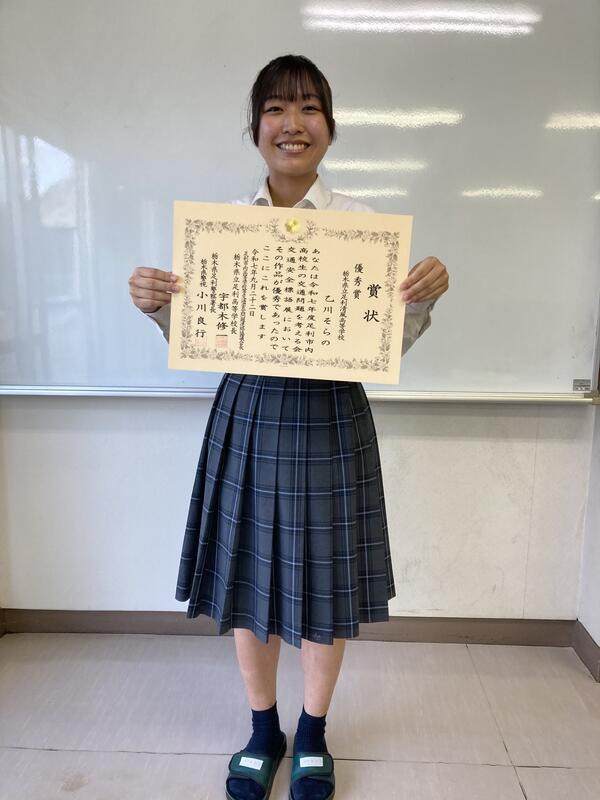 賞状
優秀賞
栃木県立足利清風高等学校
乙川そらの
あなたは令和七年度足利市内
高校生の交通問題を考える会
交通安全標語展において
その作品が優秀であったので
ここにこれを賞します
令和七年九月二十二日
栃木県立足利高等学校長
宇都木修一
栃木県足利警察署長
栃木県警視 小川良行